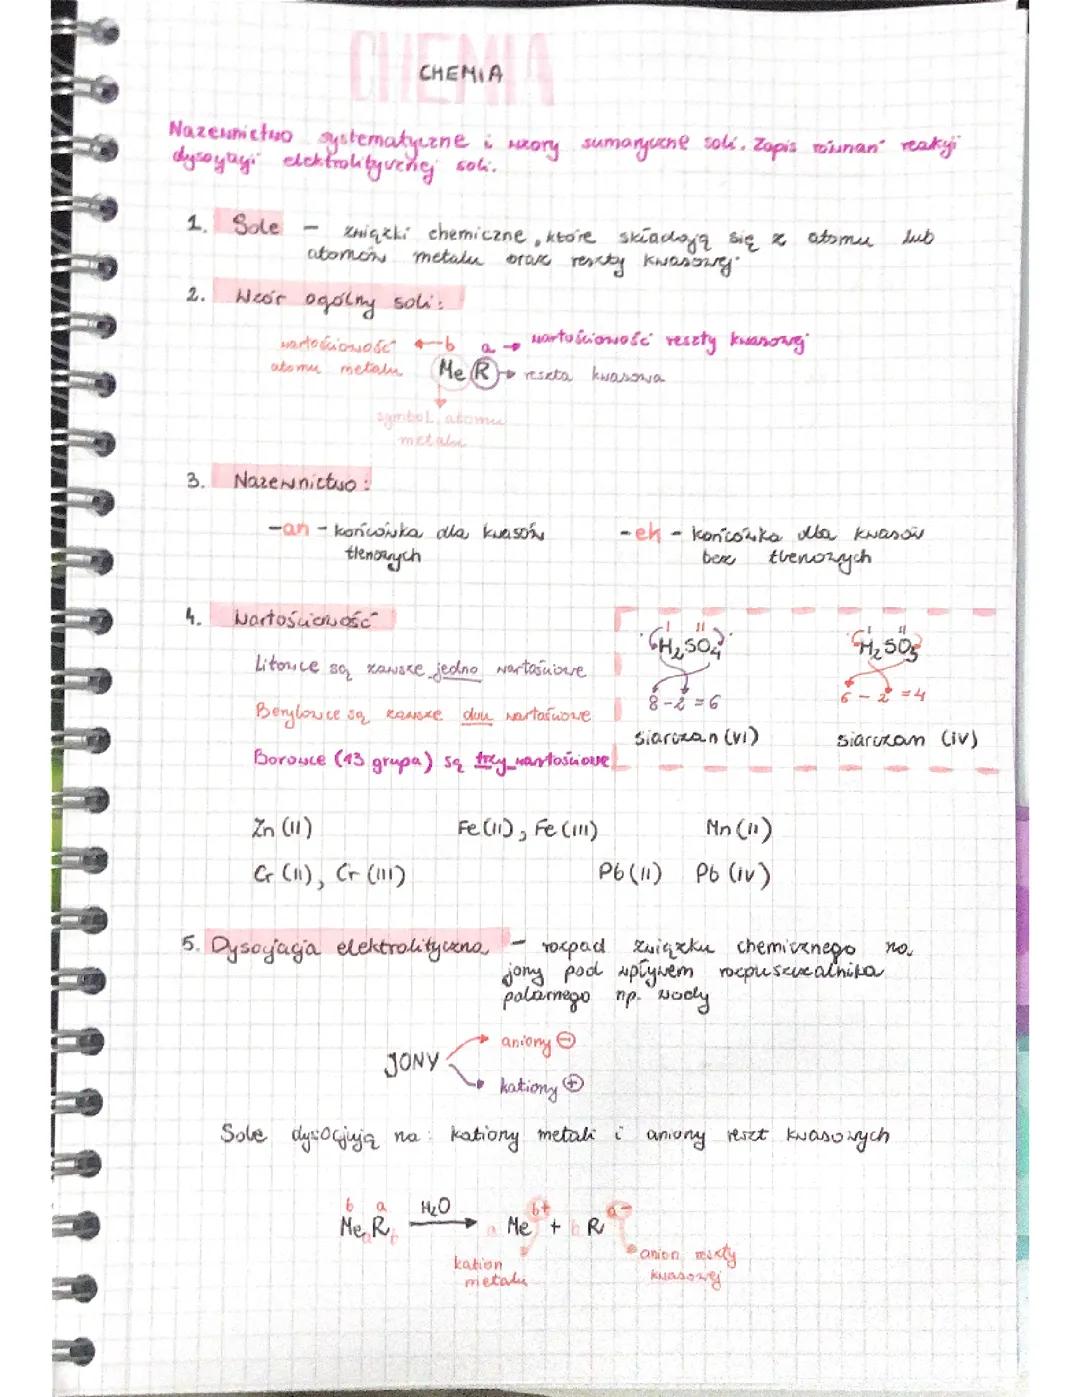 CHEMIA
CHEMIA
Nazewnictwo systematyczne i wzory sumaryczne soli. Zapis równań reakcji
dysocjacji elektrolitycznej soli.
1. Sole – związki chemiczne, które składają się z atomu lub
atomów metalu oraz reszty kwasowej.
2. Wzór ogólny soli:
wartościowość ← b a → wartościowość reszty kwasowej
atomu metalu Me R → reszta kwasowa
symbol atomu
metalu
3. Nazewnictwo:
-an - końcówka dla kwasów -ek - końcówka dla kwasów
tlenowych bez tlenowych
4. Wartościowość
I II I II
H₂SO₄ H₂SO₃
Litowce są zawsze jedno wartościowe
8-2 = 6 6 - 2 = 4
Berylowce są zawsze dwu wartościowe
siarczan (VI) siarczan (IV)
Borowce (13 grupa) są trzy wartościowe
Zn (II) Fe (II), Fe (III) Mn (II)
Cr (II), Cr (III) Pb (II) Pb (IV)
5. Dysocjacja elektrolityczna – rozpad związku chemicznego na
jony pod wpływem rozpuszczalnika
polarnego np. wody
aniony ⊖
JONY
kationy ⊕
Sole dysocjują na: kationy metali i aniony reszt kwasowych
b a H₂O b+ a-
MeₐR_b → a Me + b R
kation anion reszty
metalu kwasowej